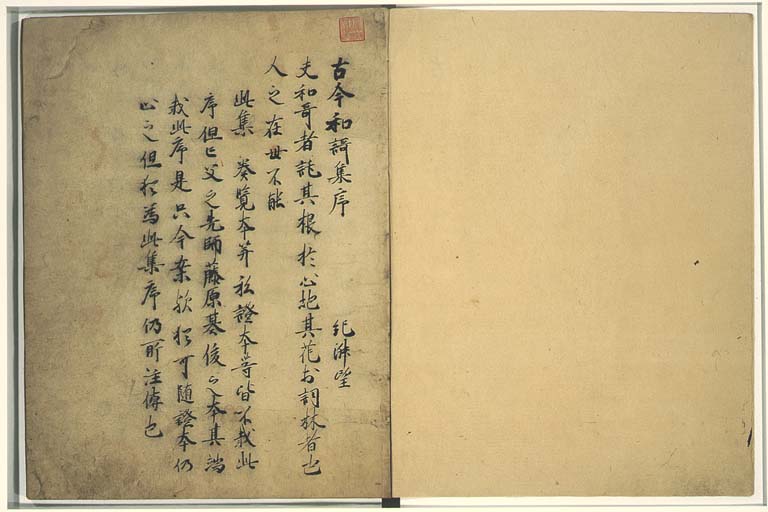 古今和謌集序
紀淑望
夫和哥者託其根於心地發其花於詞林者也
人之在世不能
此集 奏覧本并私證本等皆不載此
序但亡父之先師藤原基俊之本其端
載此序是只今案歟猶可随證本仍
止之但猶為此集序仍所注傳也